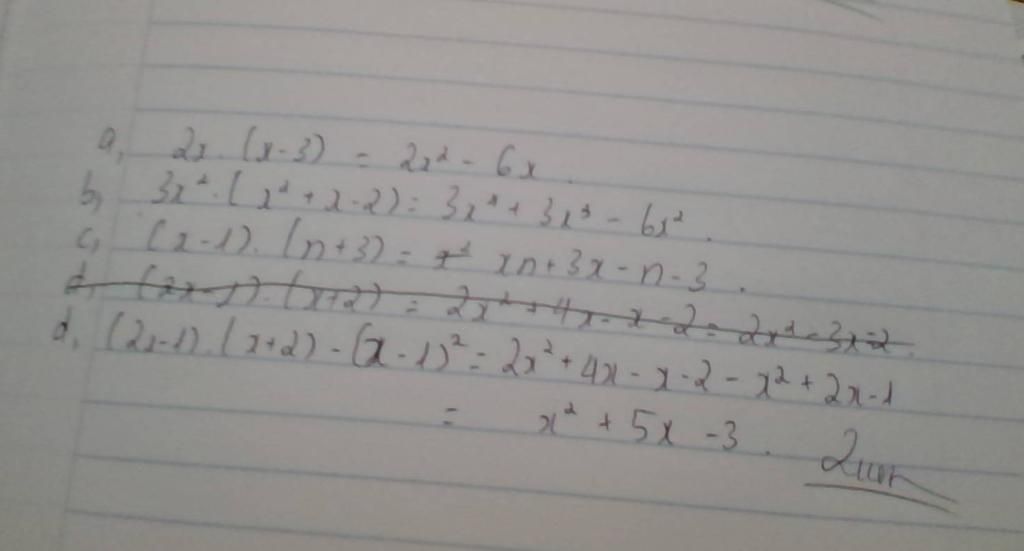 a, 2x.(x-3) = 2x² - 6x.
b, 3x².(x²+x-2) = 3x⁴ + 3x³ - 6x².
c, (x-1).(n+3) = x² xn+3x-n-3.
d, (2x-1).(x+2) = 2x²+4x-x-2 = 2x²-3x-2.
d, (2x-1).(x+2)-(x-1)² = 2x²+4x-x-2-x²+2x-1
= x²+5x-3.